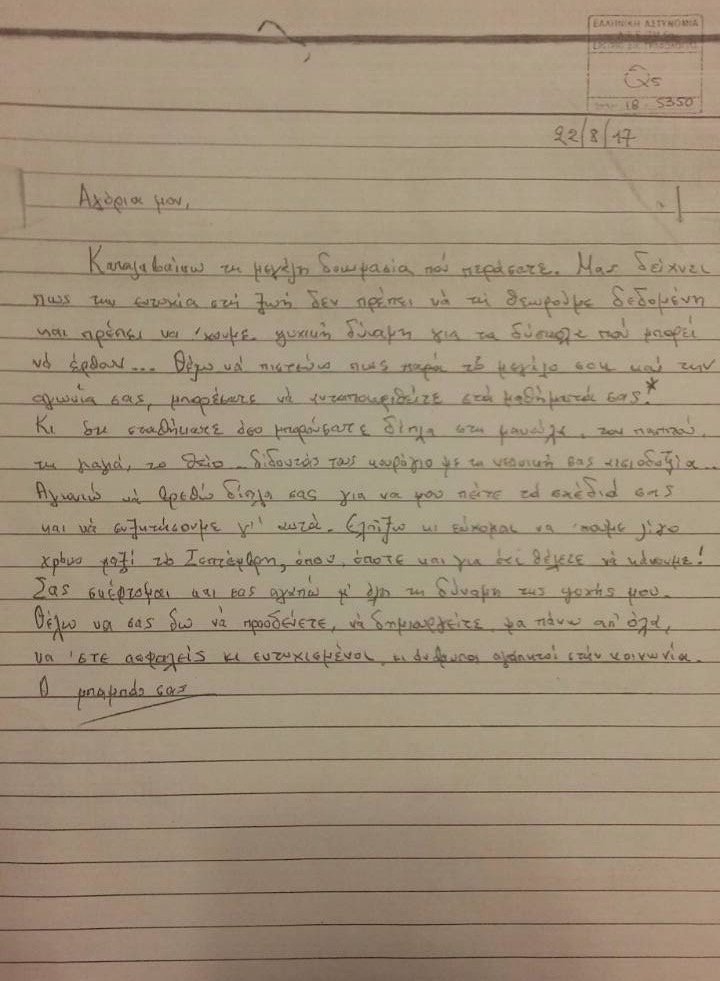 ΕΛΛΗΝΙΚΗ ΑΣΤΥΝΟΜΙΑ
Q5
18 5350
22/8/17
Αγόρια μου,
Καταλαβαίνω τη μεγάλη δοκιμασία πού περάσατε. Μας δείχνει
πως την ευτυχία στή ζωή δεν πρέπει νά τή θεωρούμε δεδομένη
και πρέπει να 'χουμε ψυχική δύναμη για τα δύσκολα πού μπορεί
νά έρθουν... Θέλω νά πιστεύω πως παρά τό μεγάλο σοκ και την
αγωνία σας, μπορέσατε νά ανταποκριθείτε στά μαθήματά σας.*
Κι αν σταθήκατε όσο μπορούσατε δίπλα στη μανούλα, τον παππού,
τη γιαγιά, το θείο.. δίδοντάς τους κουράγιο με τη νεανική σας αισιοδοξία..
Αγωνιώ νά βρεθώ δίπλα σας για να μου πείτε τά σχέδιά σας
και νά συζητάσουμε γι' αυτά. Ελπίζω κι εύχομαι να 'χουμε λίγο
χρόνο μαζί τό Σεπτέμβρη, όπου, όποτε και για ότι θέλετε νά κάνουμε!
Σάς σκέφτομαι και σας αγαπώ μ' όλη τη δύναμη της ψυχής μου.
Θέλω να σας δω νά προοδεύετε, νά δημιουργείτε, μα πάνω απ' όλα,
να 'στε ασφαλείς κι ευτυχισμένοι, κι άνθρωποι αγαπητοί στήν κοινωνία.
Ο μπαμπάς σας